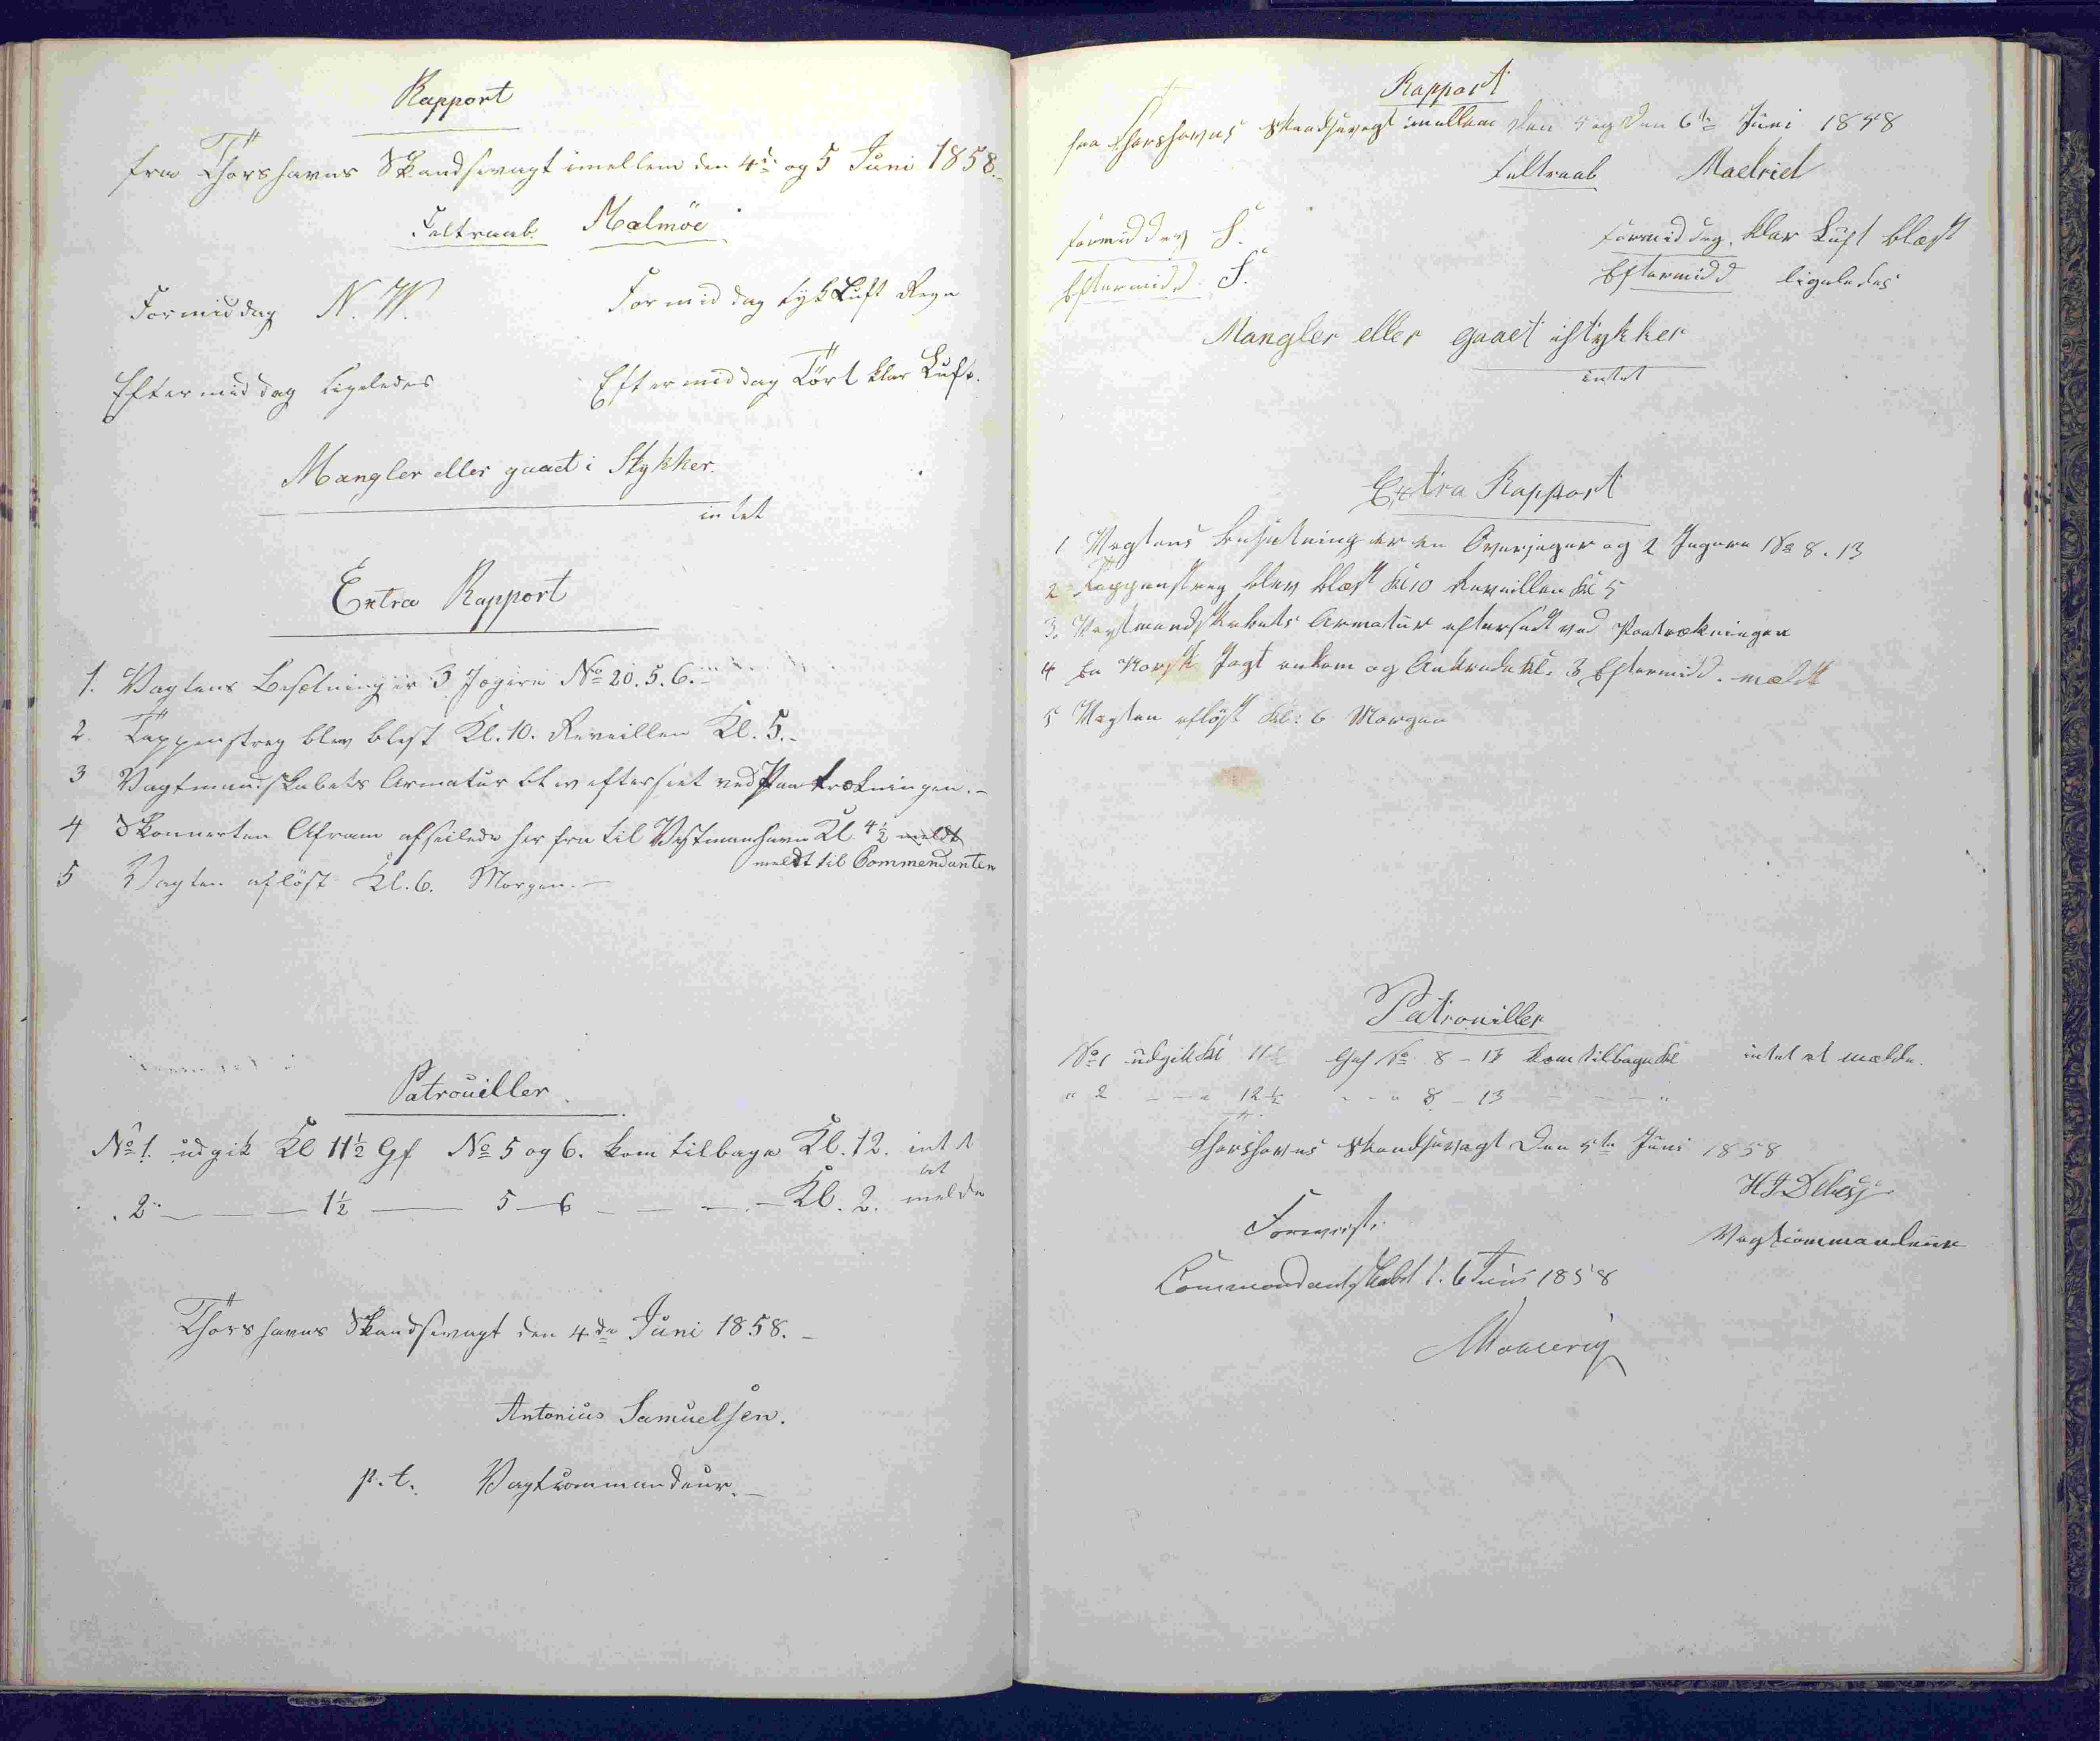 Rapport
fra Thorshavns Skandsevagt imellem den 4de og 5 Juni 1858.
Feltraab. Malmöe
Formiddag N. W. Formiddag tyk Luft Regn
Eftermiddag ligeledes Eftermiddag Tört klar Luft.
Mangler eller gaaet i Stykker.
intet
Extra Rapport
1. Vagtens Besetning er 3 Jægere No 20. 5. 6.
2. Tappenstreg blev blest Kl. 10. Reveillen Kl. 5.
3 Vagtmandskabets Armatur blev efterseet ved Paatrækningen.
4 Skonnerten Afram afseilede her fra til Vestmanhavn Kl 4½ meldt
meldt til Commendanten
5 Vagten aflöst Kl. 6. Morgen.
Patrouiller
No 1. udgik Kl 11½ Gf No 5 og 6. kom tilbage Kl. 12. intet
at
. 2 — — — 1½ — 5 — 6 — — — — Kl. 2. melde
Thorshavns Skandsevagt den 4de Juni 1858.
Antonius Samuelsen.
p. t. Vagtcommandeur.
Rapport
fra Thorshavns Skandsevagt imellem den 5 og den 6te Juni 1858
Feltraab Madrid
Formiddag S. Formiddag. klar Luft blæst
Eftermidd. S. Eftermidd ligeledes
Mangler eller gaaet istykker
intet
Extra Rapport
1 Vagtens besætning er en Overjæger og 2 Jægere No 8. 13
2 Tappenstreg blev blæst Kl 10 Reveillen Kl 5
3. Vagtmandskabets Armatur efterseet ved Paatrækningen
4 En Norsk Jagt ankom og Ankrede Kl. 3 Eftermidd. meldt
5 Vagten aflöst Kl: 6 Morgen
Patrouiller
No 1 udgik Kl 11½ Gef No 8 – 13 kom tilbage Kl intet at mælde.
" 2 — — " 12½ - - " 8 – 13 — — — "
Thorshavns Skandsevagt Den 5te Juni 1858
Vagtcommandeur
Foreviist.
Commandantskabet d. 6 Juni 1858